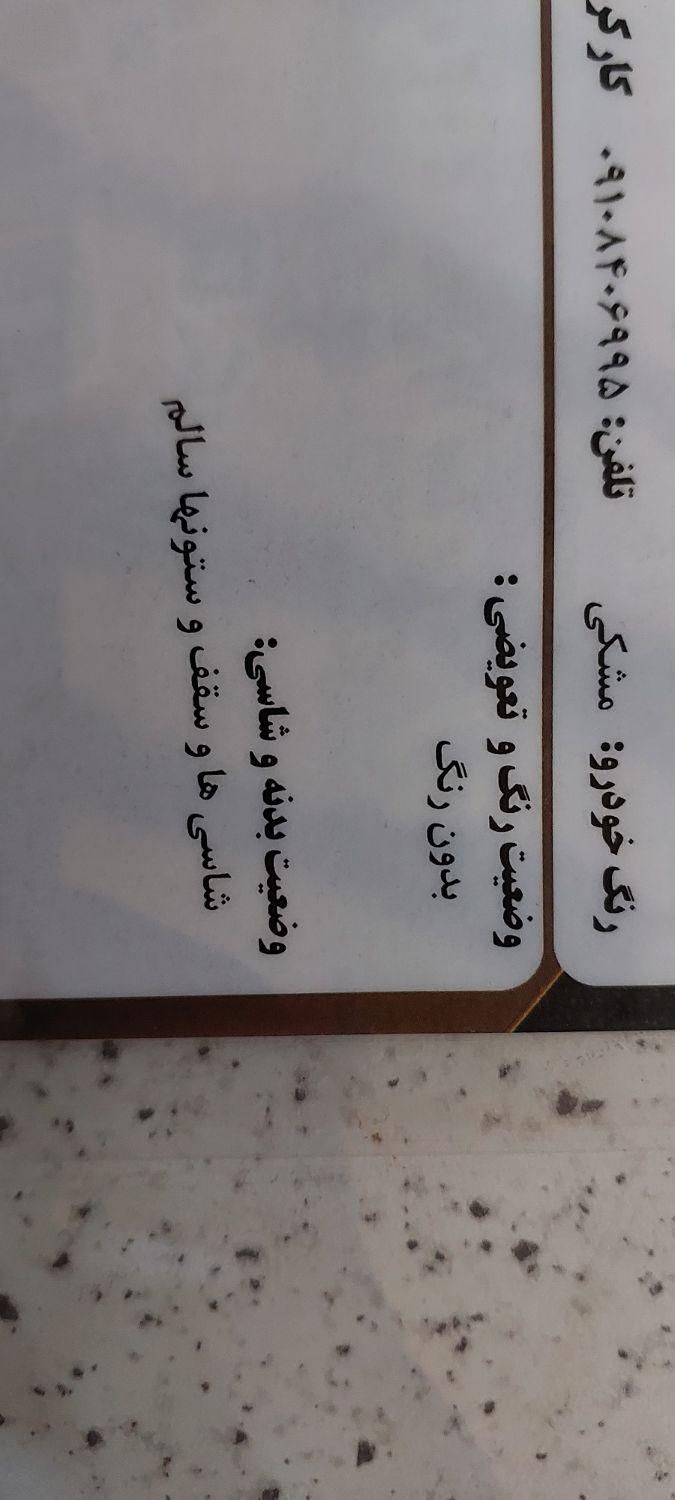 رنگ خودرو: مشکی تلفن: ۰۹۱۰۸۴۰۶۹۹۵
وضعیت رنگ و تعویضی:
بدون رنگ
وضعیت بدنه و شاسی:
شاسی ها و سقف و ستونها سالم